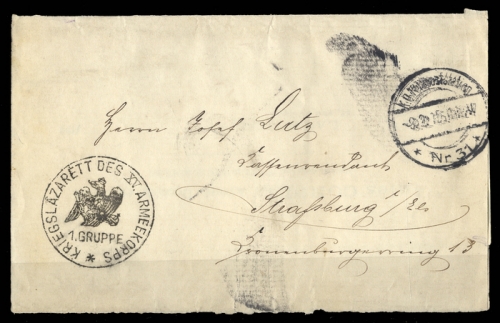 Nr. 31
Herrn Josef Lutz
Kassenrendant
Strassburg i/Els
Kronenburgerring 13
KRIEGSLAZARETT DES XV. ARMEEKORPS
1. GRUPPE